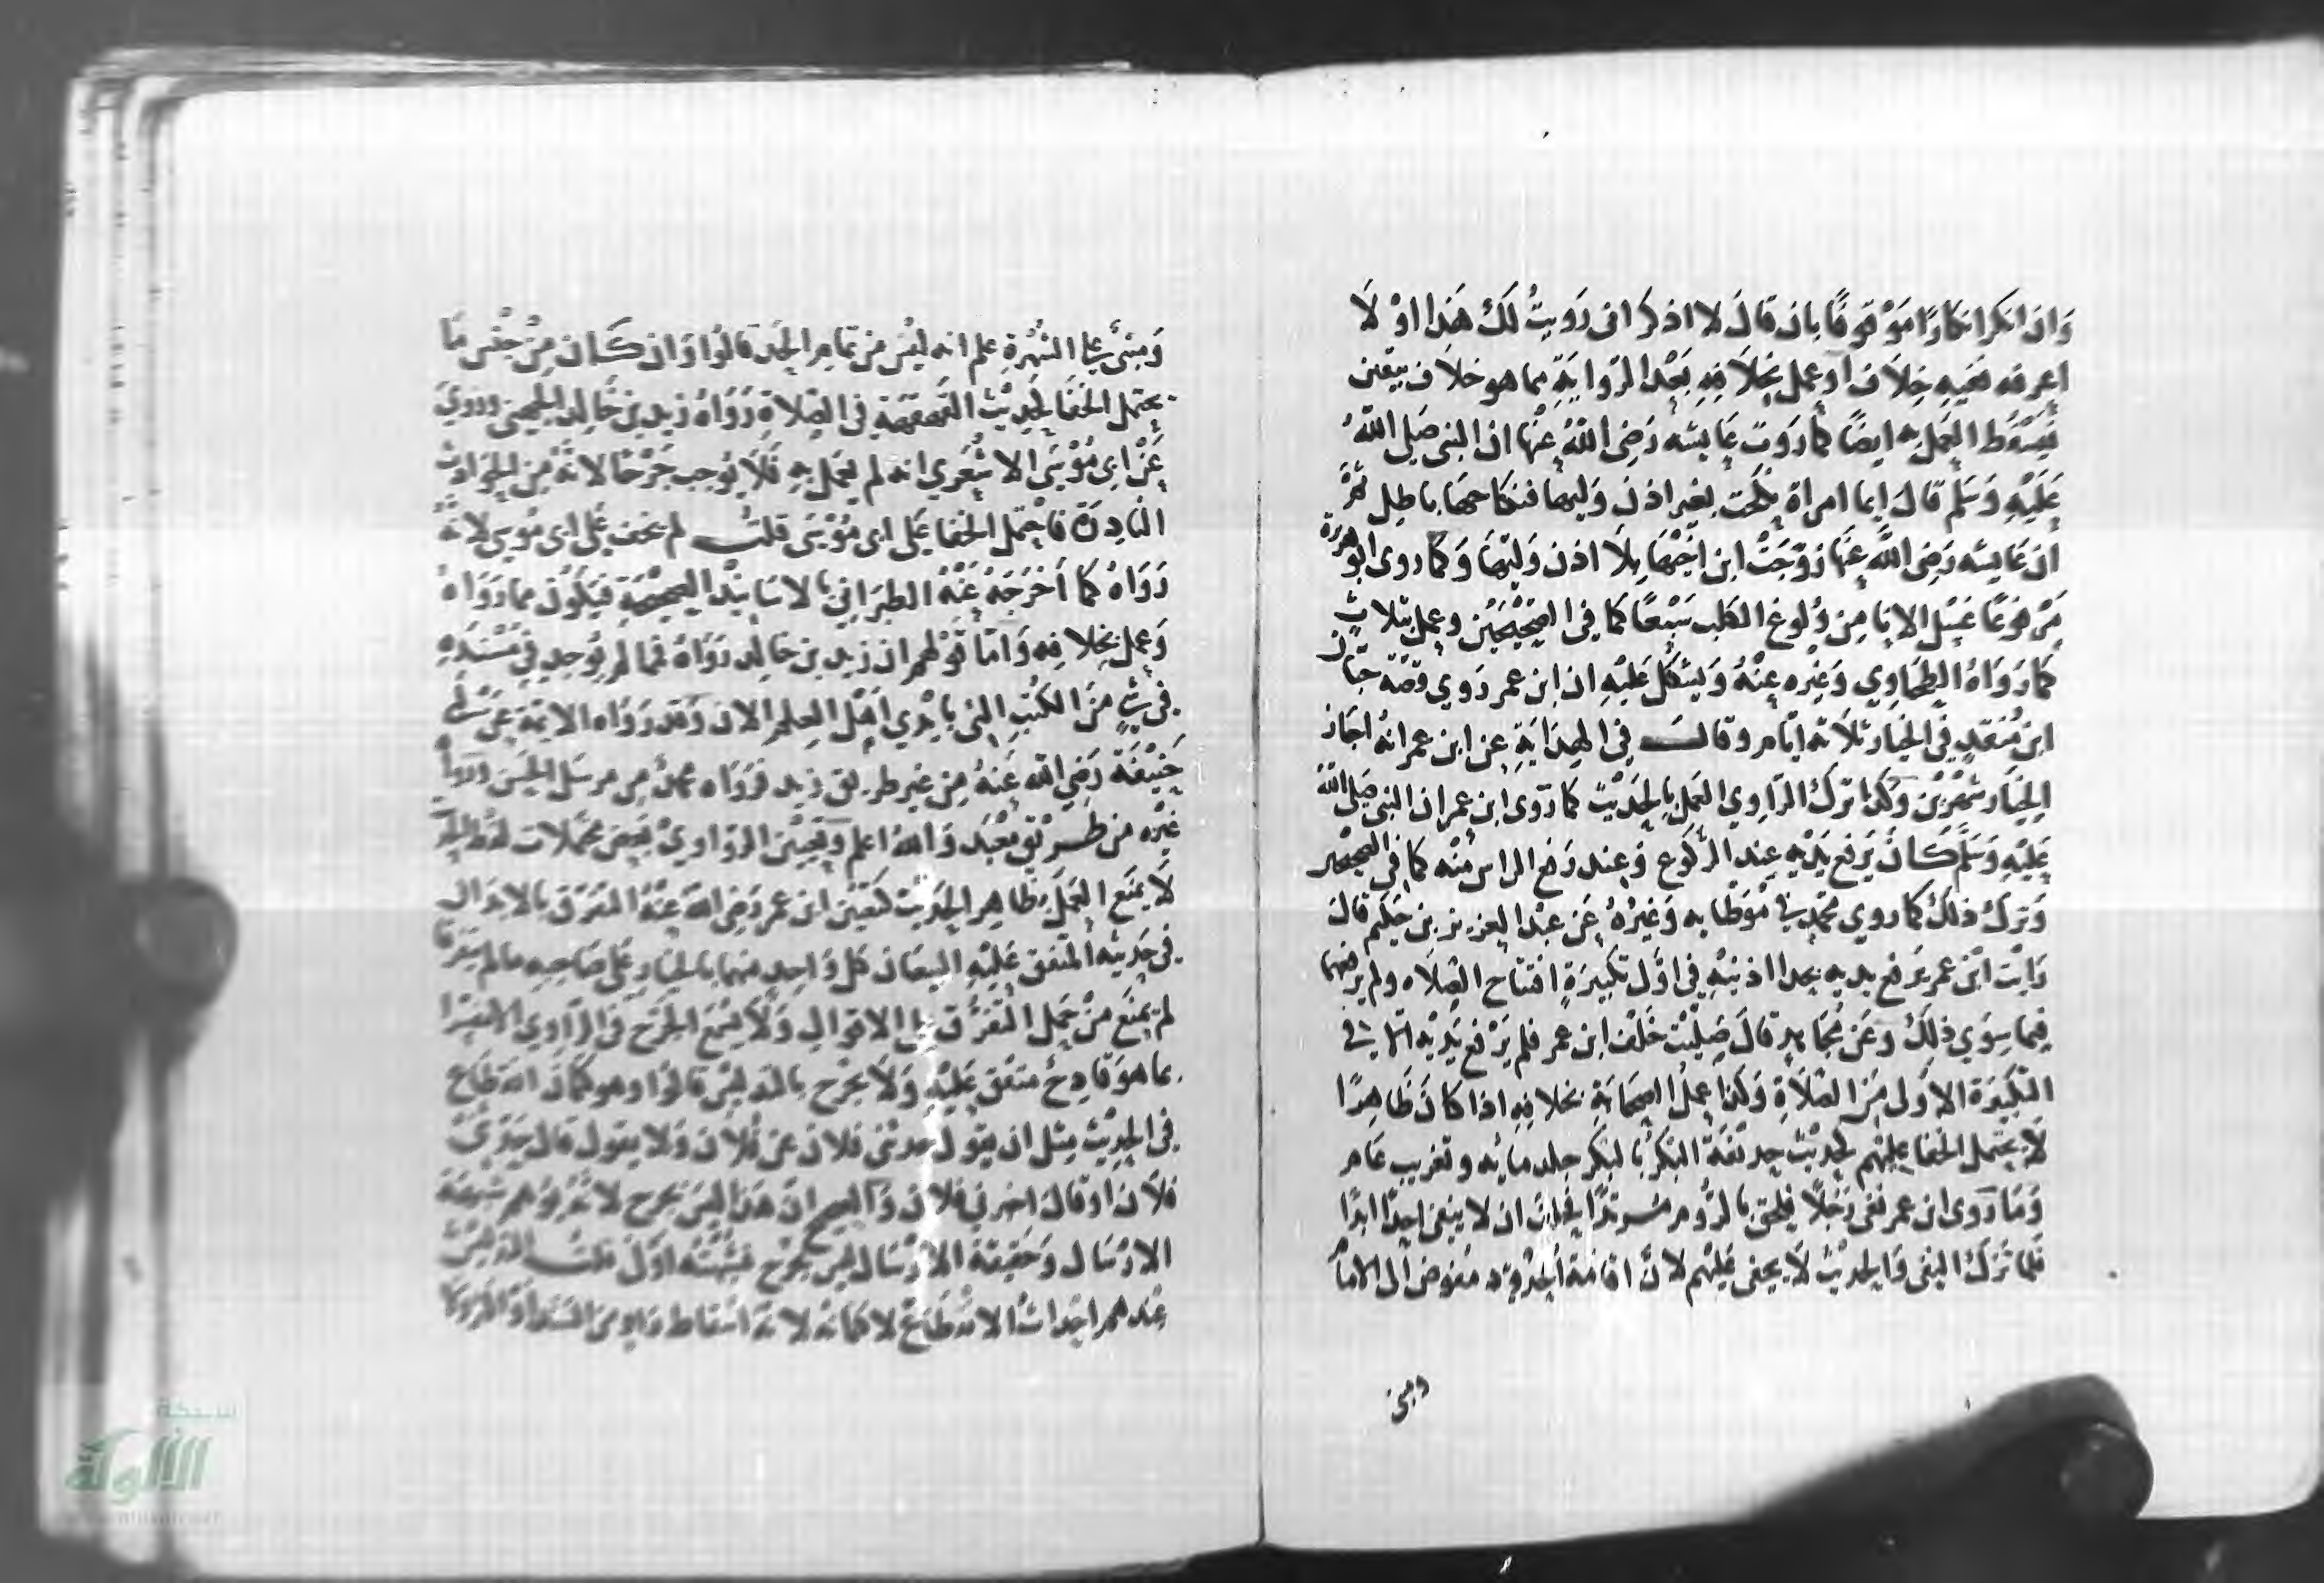 وَان انكر انكارًا مَوْقوفًا بان قالَ لا اذكر انى رَويتُ لكَ هَذا اوْ لَا
اعرفه ففيه خِلاف او عمل بخِلاَفِهِ بَعْد الرّوايَةِ مما هو خلاف بيَقين
فيَسْقُط العَمَل به ايضًا كما رَوَت عَايشه رَضى اللهُ عنْها ان النبى صَلى اللهُ
عَليْهِ وَسَلم قالَ ايما امراة نكحَت بغير اذن وَليها فنكاحهَا باطِل ثمَّ
ان عَايشه رَضى اللهُ عنهَا زوّجَتْ ابن اخيْها بلَا اذن وَليّها وَكما روى ابوهرَيْرَة
مَرْفوعًا غسْل الانا من وُلوغ الكلب سَبْعًا كما فى الصَّحيْحَيْن وعمل بثلاثٍ
كمَا رَوَاهُ الطحَاوي وَغيْره عنْهُ وَيشكل عَليْهِ ان ابن عمر رَوي قصّة حبّان
ابن مُنقذٍ فى الخيار ثلَاثة ايّام وقالـــ فى الهدَايَةِ عن ابن عمر انهُ اجَاز
الخيَار شهْرَيْن وَكذا ترك الرّاوِي العَمل بالحَديْث كما رَوى ابن عمر ان النبى صَلى اللهُ
عَليْهِ وَسَلمَ كَانَ يَرْفع يَدَيْه عند الركُوع وَعند رَفع الراس منْه كما فى الصحيحين
وَترك ذلكَ كما روي محمّد فى مؤطّايه وَغيرُهُ عَن عبْد العزيز بن حَكم قال
رَايْت ابْن عمر يَرفع يديه بحدا اذنيْهِ فى اوَّل تكبيرَةٍ افتتاح الصّلاه ولم يرفعهما
فِيما سِوَي ذلِكَ وَعَن مُجَاهِدٍ قالَ صَليْت خَلْف ابن عمر فلم يَرْفع يَدَيْه الا فى
التكبيْرَة الاوَلى منَ الصَّلَاةِ وَكذا عمل الصحَابَةِ بخلافِهِ اذا كانَ ظَاهِرًا
لَا يحتمل الخفا عليْهم كحديْث البكرُ بالبكر جلد مايه وتغريب عَام
وَمَا رَوى ان عمر نفى رَجُلًا فلحق بالرُّوم مرْتدًّا فحلف ان لا ينفى احِدًا ابدًا
فلما تركَ النفى وَالحديْث لَا يخفى عَليْهم لانَّ اقامَة الحدُوْد مفوض الى الامام
ومبنى
وَمبْنى عَلى الشهْرَةِ علم انه ليْسَ من تمامِ الحَد قالوُا وَان كَــان مِنْ جنْس مَا
يحتمل الخفَا كحَديْث القَهقهَة فى الصّلاةِ رَوَاهُ زيد بن خَالد الجهنى وروِيَ
عَنْ ابى مُوْسَى الاشْعَري انه لم يعمَل بهِ فَلَا يُوجب جَرْحًا لانَّهُ مِن الحَوادِث
النادِرَة فاحتمل الخفا عَلى ابى مُوْسَى قلتُــــ لم يخف عَلى ابى مُوسى لانهُ
رَوَاهُ كما اَخرَجَهُ عَنْهُ الطبَرَانِى بالاسَانِيْد الصحيْحَةِ فيَكُونُ مما رَوَاهُ
وَعمل بخلافِه وَامّا قوْلهم ان زيد بن خالد رَوَاهُ فمَا لم يُوجد فِى مُسْنَدِهِ
فى شيٍ منَ الكتبِ التى بايْدي اهْل العِلم الان وَقد رَوَاه الايمّة عَن
حَنِيْفَةَ رَضى الله عَنهُ مِن غير طريق زيد فروَاه محمدٌ من مرسَل الحَسَن وَرواهُ
غيْره من طـــريْق مَعْبَد وَاللهُ اعلم وَتعْيِيْن الرّواوِيْ بَعض محتملات لفظ الحديث
لَا يمنَع العَمَل بظَاهِر الحَديْث كتعْيين ابن عمر رَضى اللهُ عنهُ التفرّق بالابدَان
فى حَديثه المتفق عَليْهِ البيعَان كل وَاحِد منهما بالخيَار عَلى صَاحبهِ مالم يتفرقا
لم يمنَع منْ حَمل التفرّق على الاقوَالِ وَلَا يسْمَع الجَرح فى الرّاوِي الا مُفَسّرًا
بما هوَ قادِح متفق عَليْه وَلَا يجرْح بالتدليس قالوا وهو كتمان انقطاع
فى الحديْث مثل ان يقول حدثنى فلان عن فُلان وَلا يقول قال حَدثَنى
فلَان او قال اخبرنى فلان وَالصحيح انَّ هَذا ليْس بجرح لانَّهُ يُوهم شبهَة
الارْسَال وَحَقيْقةُ الارْسَال ليس بجَرْح فشُبْهَتُه اوْلى قلتُــــ التدليسُ
عند هم احْداثُ الانقِطَاعْ لا كتمانهُ لانهُ اسْقاط راوٍ منَ السّند